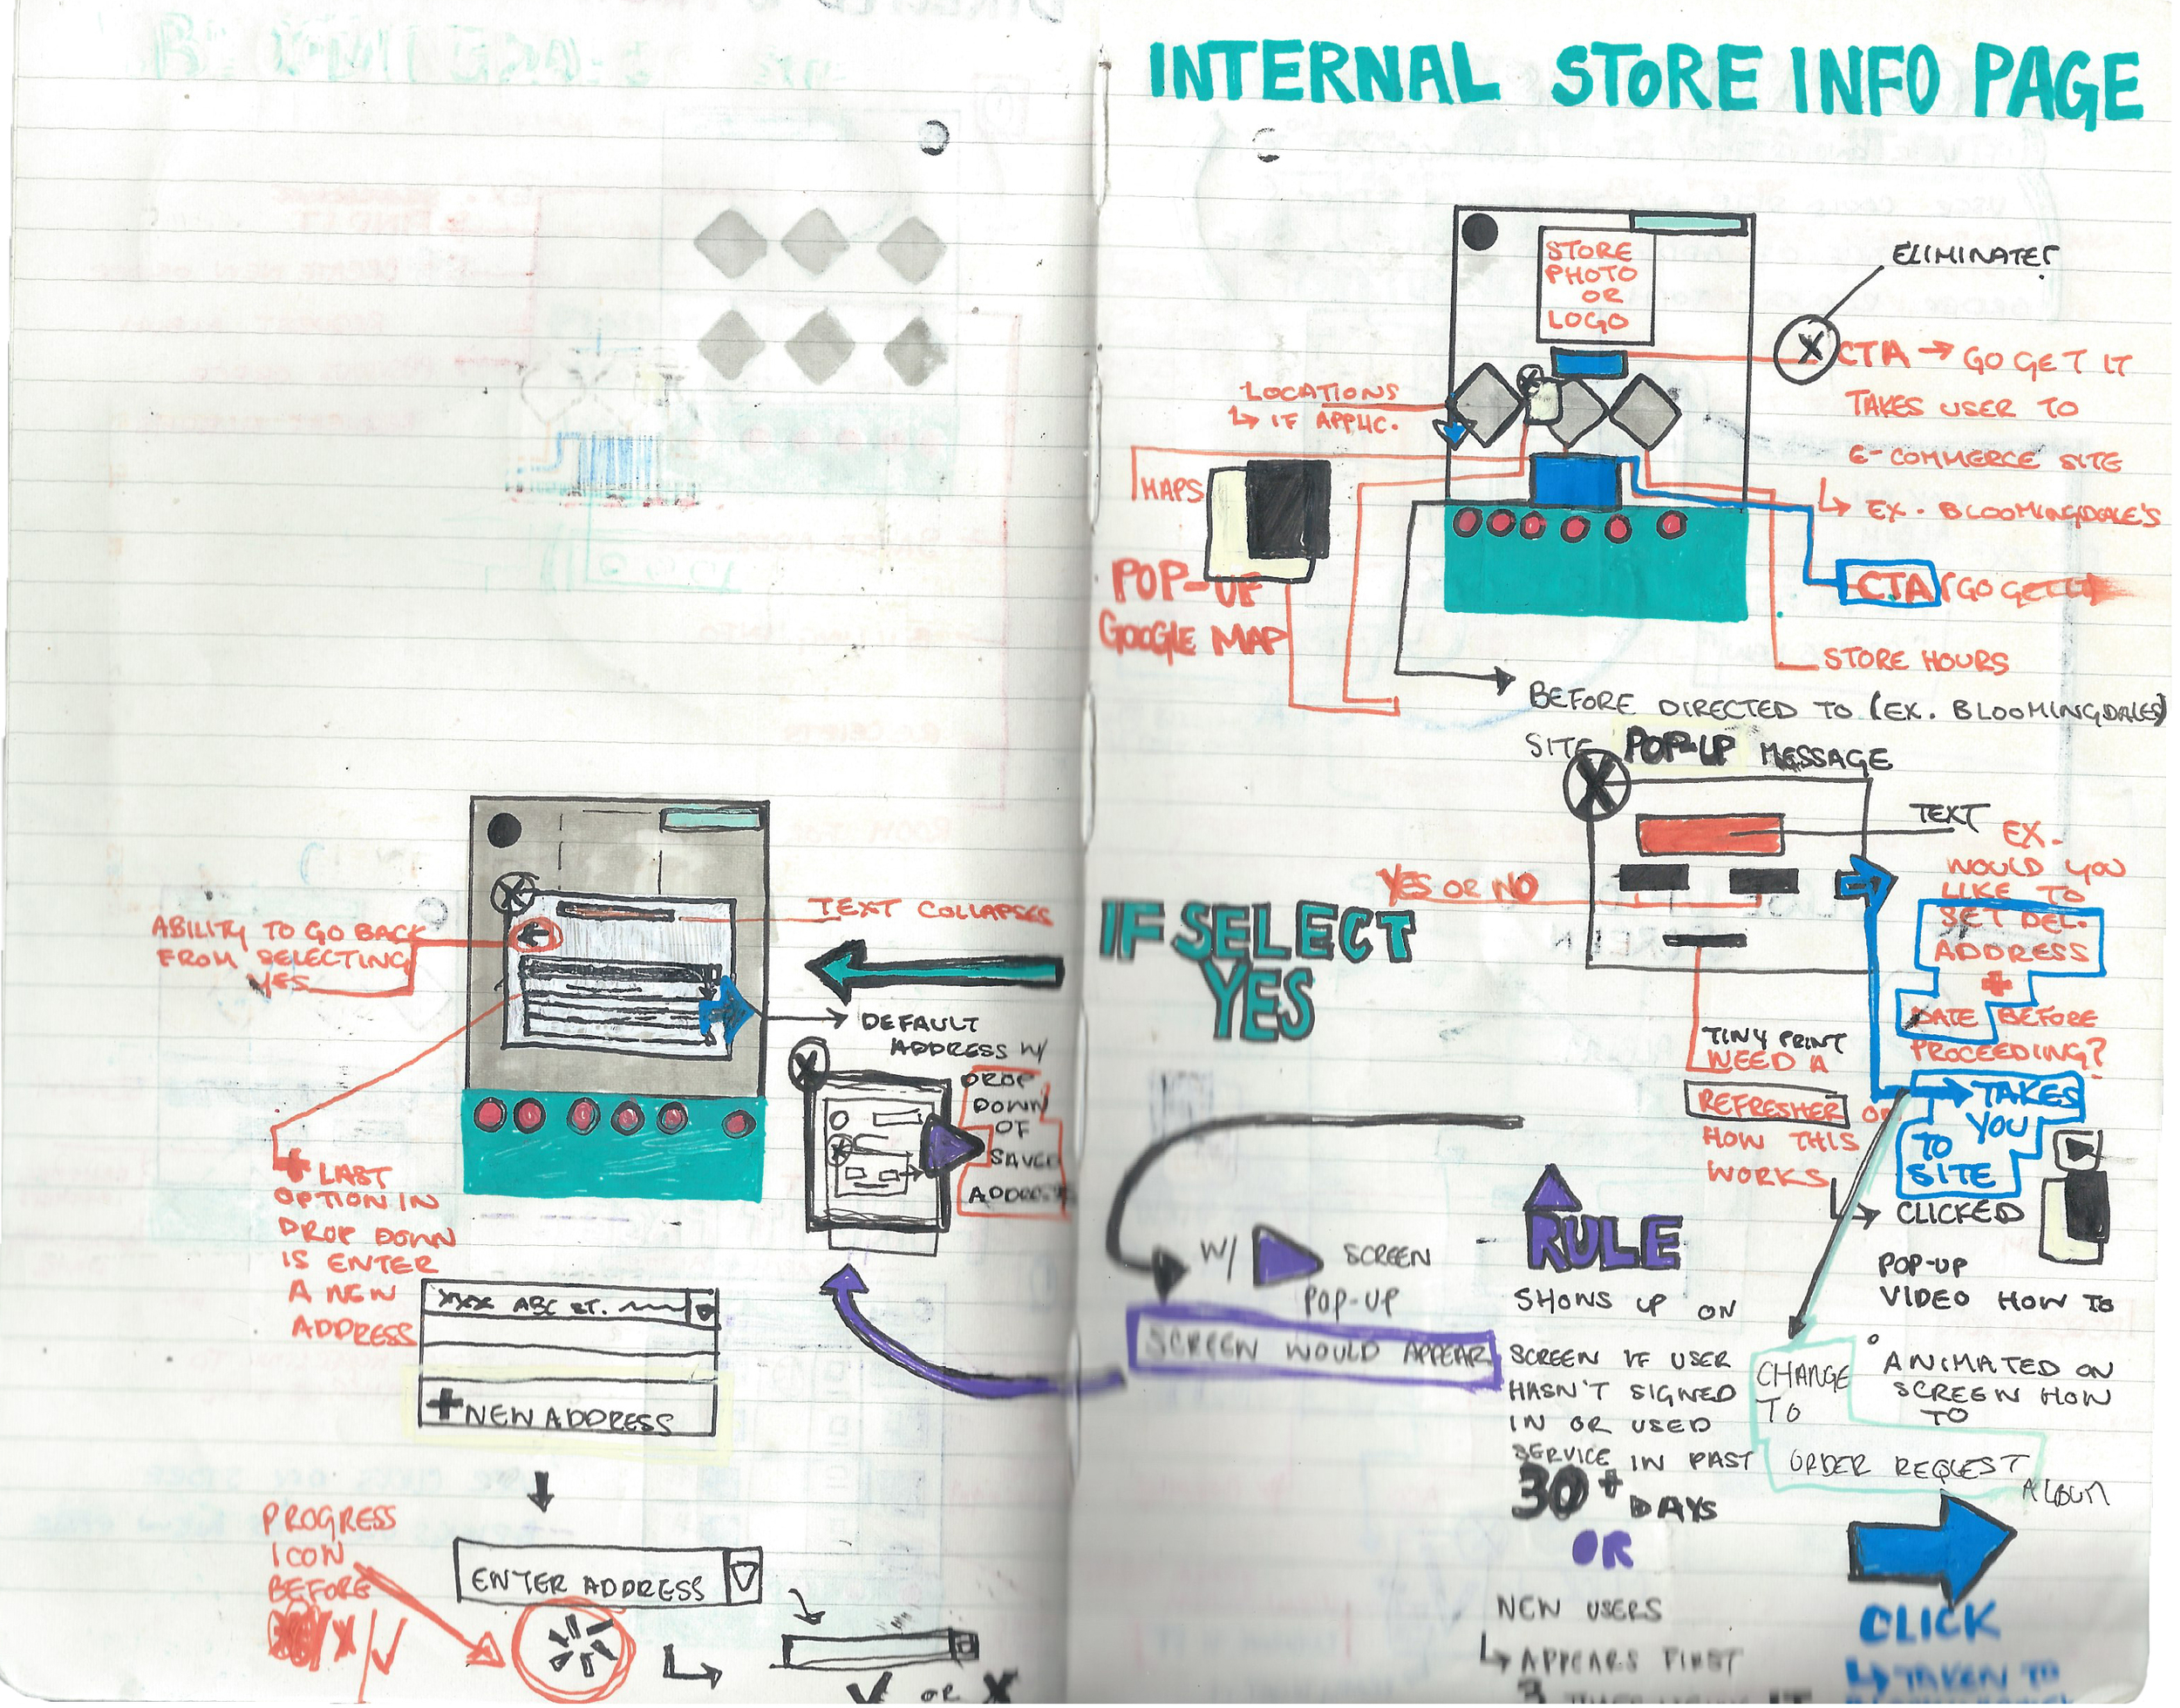 INTERNAL STORE INFO PAGE
STORE
PHOTO
OR
LOGO
ELIMINATE?
X
CTA → GO GET IT
TAKES USER TO
E-COMMERCE SITE
↳ EX. BLOOMINGDALE'S
CTA (GO GET IT)
STORE HOURS
LOCATIONS
↳ IF APPLIC.
MAPS
POP-UP
GOOGLE MAP
BEFORE DIRECTED TO (EX. BLOOMINGDALES)
SITE POP-UP MESSAGE
X
TEXT
EX.
WOULD YOU
LIKE TO
SET DEL.
ADDRESS
+
DATE BEFORE
PROCEEDING?
→ TAKES
YOU
TO
SITE
YES OR NO
TINY PRINT
NEED A
REFRESHER ON
HOW THIS
WORKS
↳ CLICKED
POP-UP
VIDEO HOW TO
ANIMATED ON
SCREEN HOW
TO
CHANGE
TO
ORDER REQUEST
ALBUM
CLICK
↳ TAKEN TO
IF SELECT
YES
RULE
SHOWS UP ON
SCREEN IF USER
HASN'T SIGNED
IN OR USED
SERVICE IN PAST
30+ DAYS
OR
NEW USERS
↳ APPEARS FIRST
3
W/ SCREEN
POP-UP
SCREEN WOULD APPEAR
TEXT COLLAPSES
X
ABILITY TO GO BACK
FROM SELECTING
YES
DEFAULT
ADDRESS W/
DROP
DOWN
OF
SAVED
ADDRESS
X
+ LAST
OPTION IN
DROP DOWN
IS ENTER
A NEW
ADDRESS
XXX ABC ST.
+ NEW ADDRESS
ENTER ADDRESS
PROGRESS
ICON
BEFORE
X/✓
✓ OR X